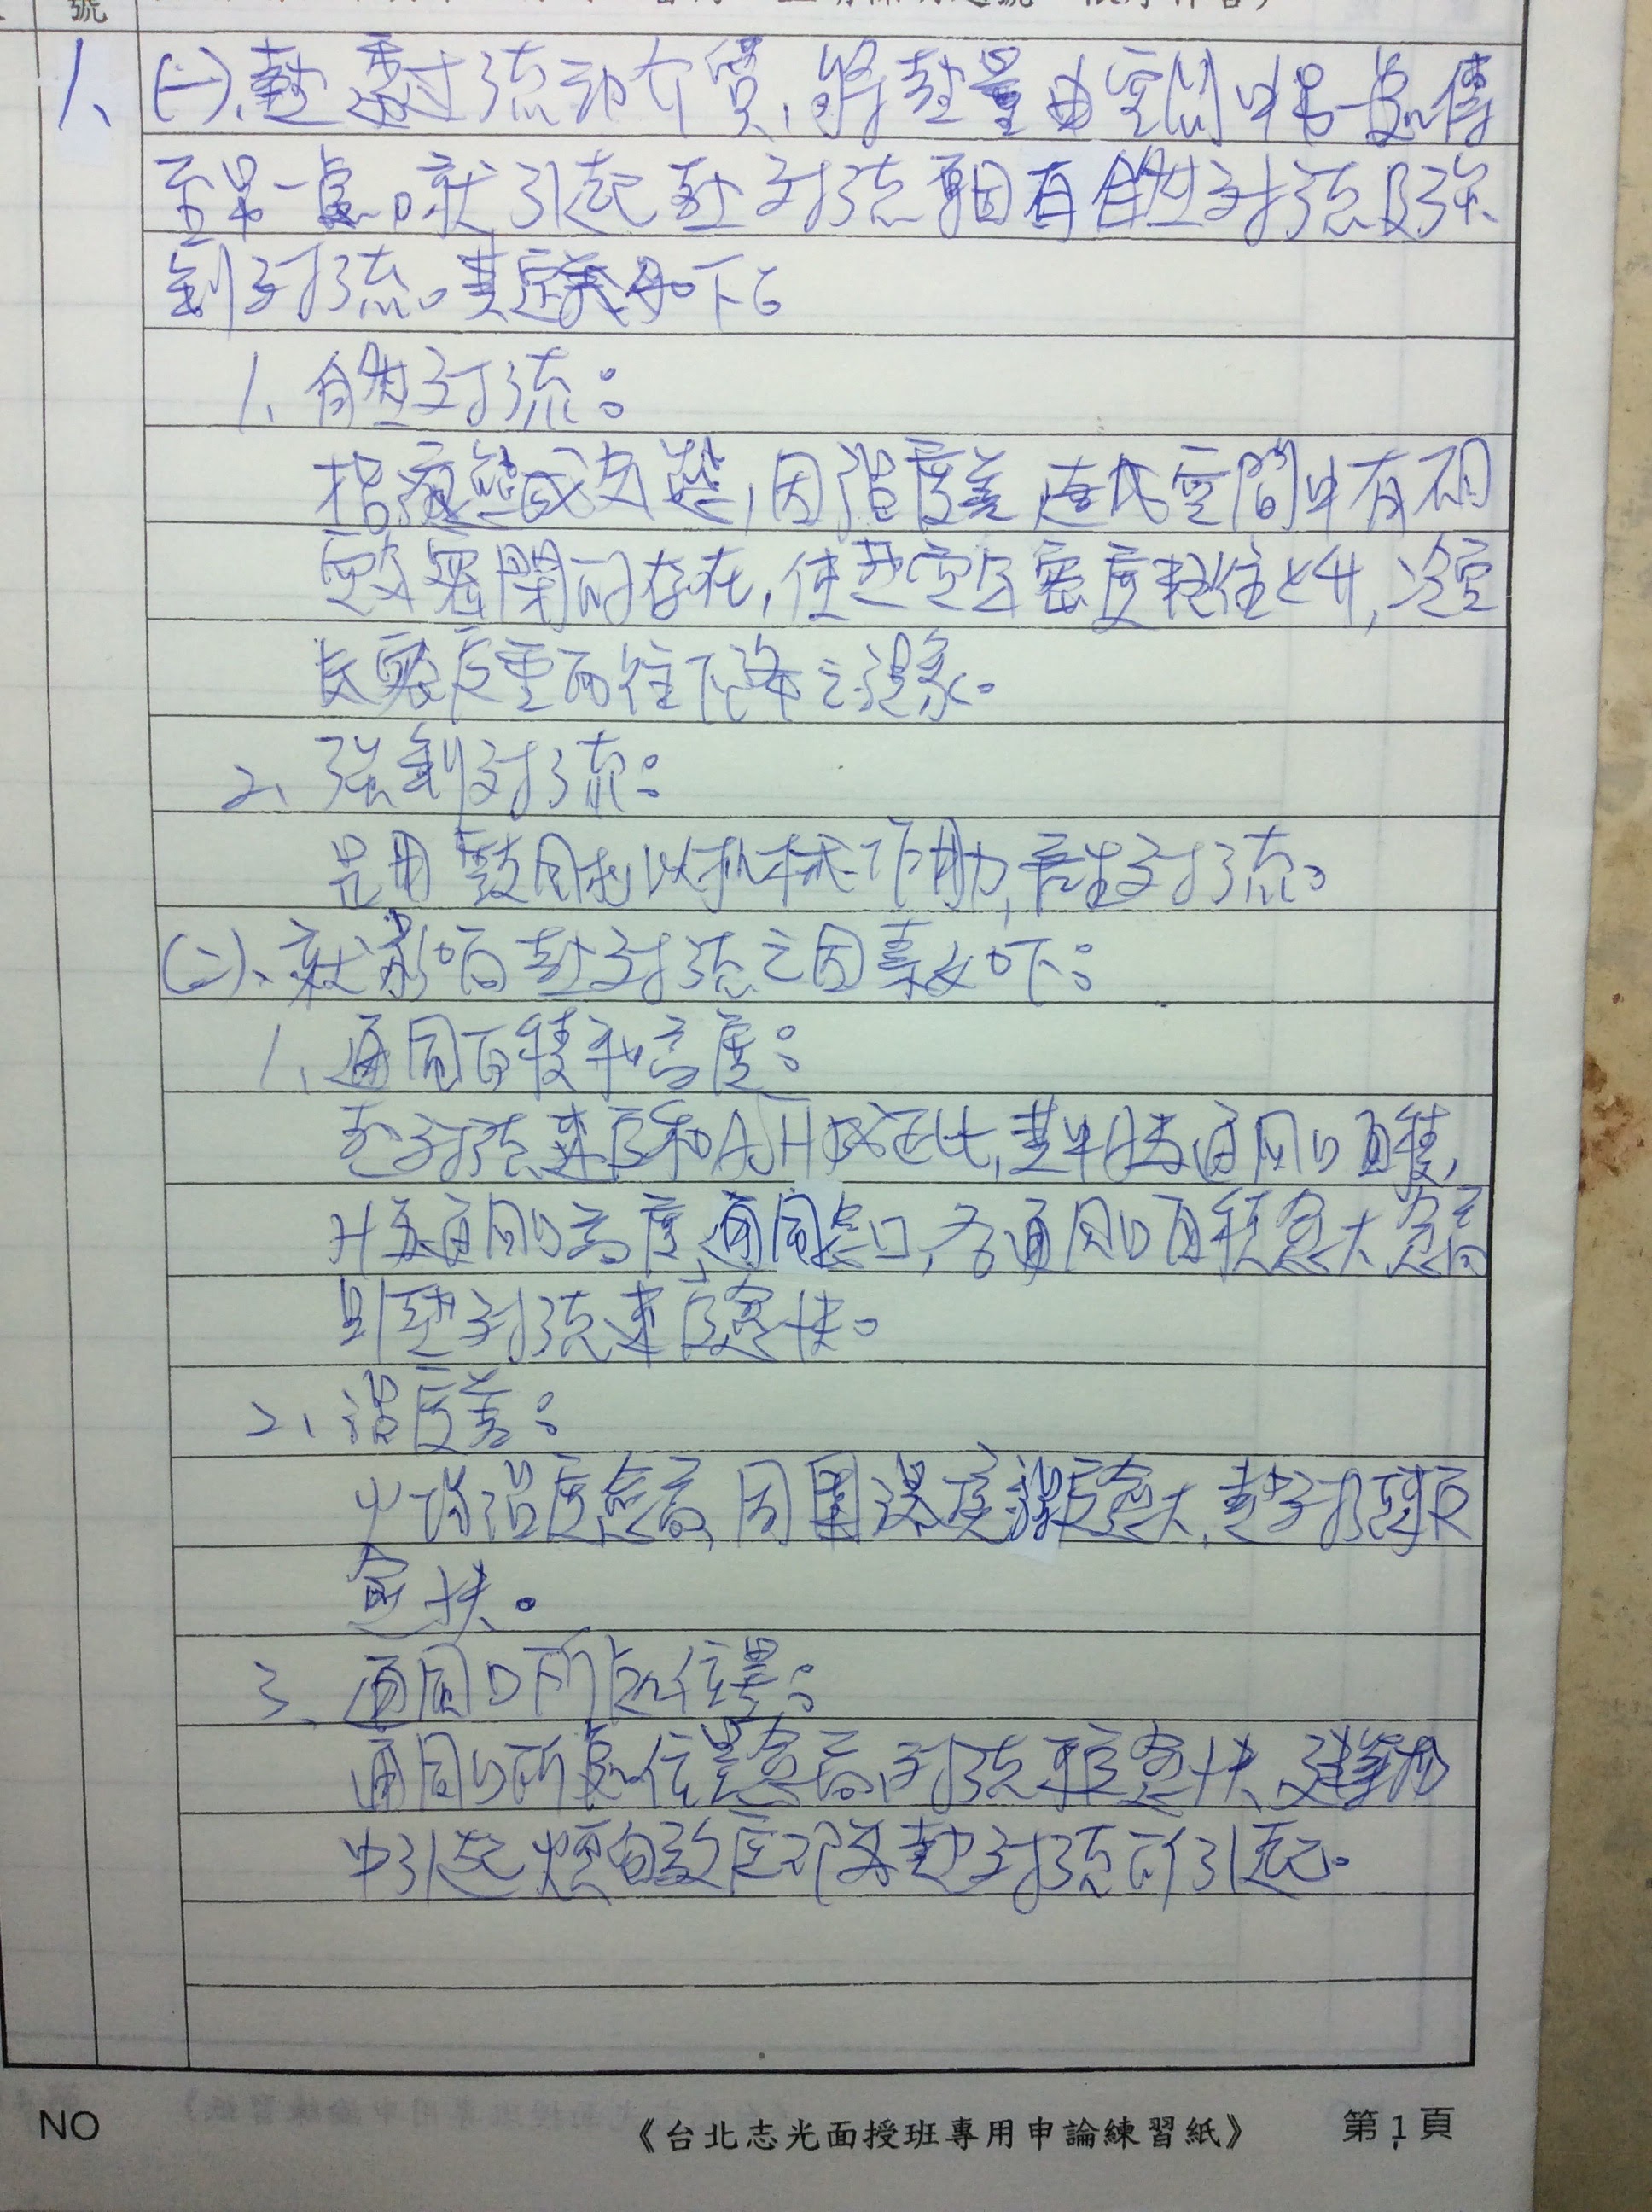 號
1、(一)、熱透過流動介質,將熱量由空間中另一處傳
至另一處。就引起熱對流原因有自然對流及強
制對流。其定義如下:
1、自然對流:
指液態或氣態,因溫度差造成空間中有不同
密閉的存在,使熱空氣密度輕往上升,冷空
氣密度重而往下降之現象。
2、強制對流:
是用鼓風機以機械作動,產生對流。
(二)、就影響熱對流之因素如下:
1、通風面積和高度:
熱對流速度和A、H成正比,其中A為通風口面積,
H為通風口高度,通風口,若通風口面積愈大、愈高
則熱對流速度愈快。
2、溫度差:
火場溫度愈高,周圍溫度愈大,熱對流速度
愈快。
3、通風口所處位置:
通風口所處位置愈高,對流速度愈快,建築物
中引起煙囪效應即為熱對流所引起。
NO
《台北志光面授班專用申論練習紙》
第1頁